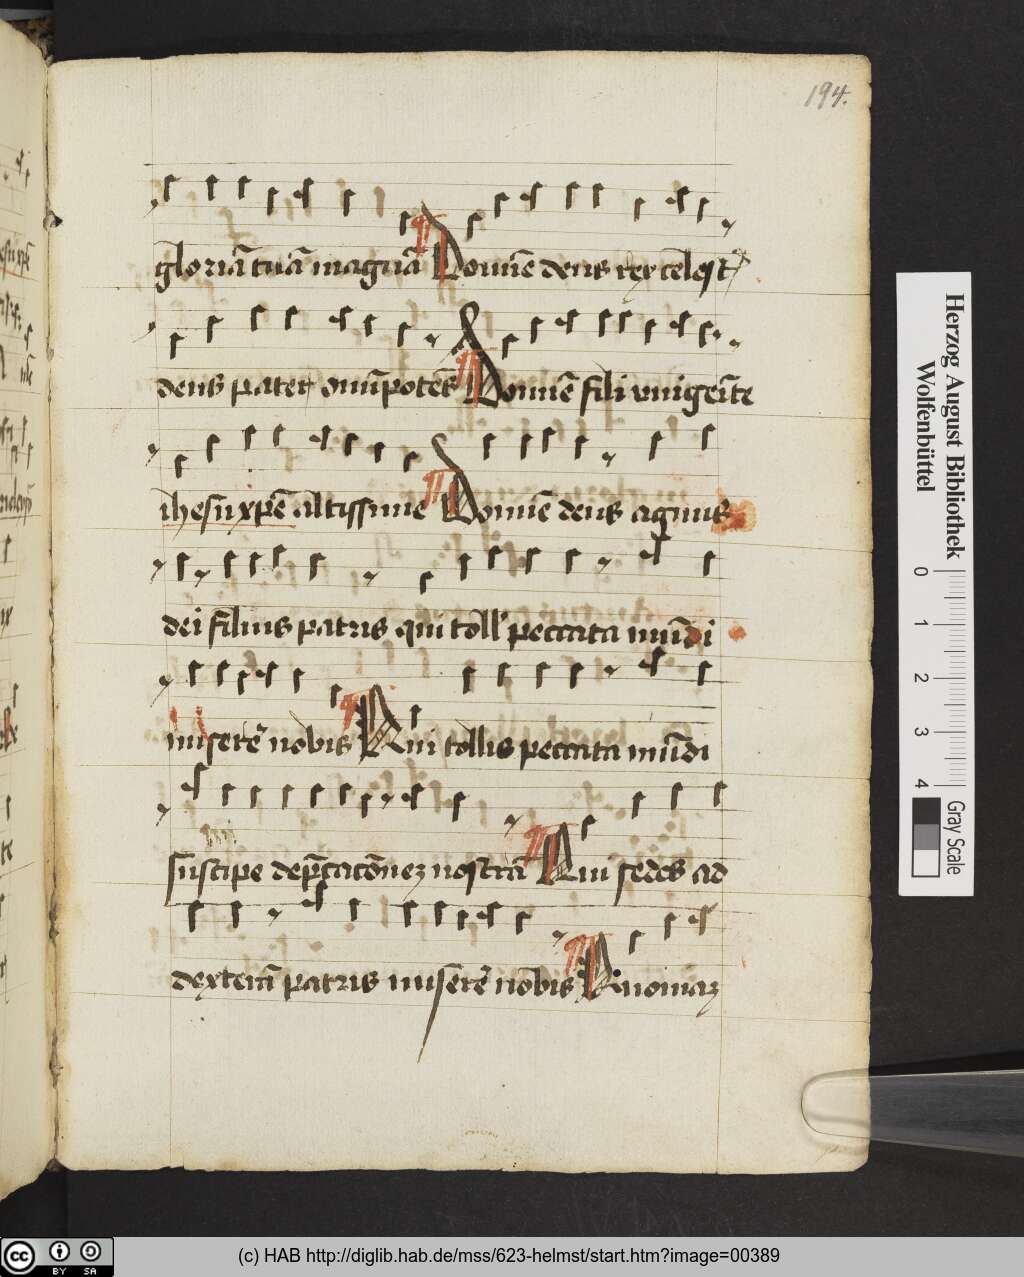 194.
gloriā tuā magnā Domīe deus rex celest
deus pater omīpotēs Domīe fili vnigeīte
ihesu xp̄e altissime Domīe deus agnus
dei filius patris qui toll' peccata mūdi
miserē nobis Qui tollis peccata mūdi
suscipe dep̄catōnez nostrā Qui sedes ad
dexterā patris miserē nobis Qīnomaz
Herzog August Bibliothek
Wolfenbüttel
0 1 2 3 4
Gray Scale
cc BY SA
(c) HAB http://diglib.hab.de/mss/623-helmst/start.htm?image=00389